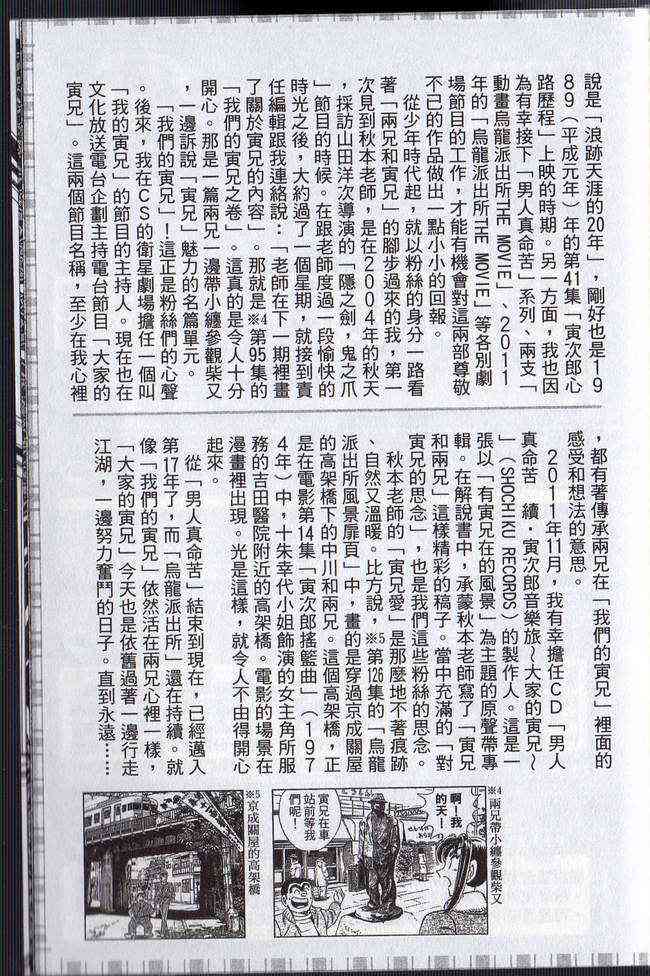 說是「浪跡天涯的20年」，剛好也是19
89（平成元年）年的第41集「寅次郎心
路歷程」上映的時期。另一方面，我也因
為有幸接下「男人真命苦」系列、兩支「
動畫烏龍派出所THE MOVIE」、2011
年的「烏龍派出所THE MOVIE」等各別劇
場節目的工作，才能有機會對這兩部尊敬
不已的作品做出一點小小的回報。
從少年時代起，就以粉絲的身分一路看
著「兩兄和寅兄」的腳步過來的我，第一
次見到秋本老師，是在2004年的秋天
，採訪山田洋次導演的「隱之劍，鬼之爪
」節目的時候。在跟老師度過一段愉快的
時光之後，大約過了一個星期，就接到責
任編輯跟我連絡說：「老師在下一期裡畫
了關於寅兄的內容」。那就是※4第95集的
「我們的寅兄之卷」。這真的是令人十分
開心。那是一篇兩兄一邊帶小纏參觀柴又
，一邊訴說「寅兄」魅力的名篇單元。
「我們的寅兄」！這正是粉絲們的心聲
。後來，我在CS的衛星劇場擔任一個叫
「我的寅兄」的節目的主持人。現在也在
文化放送電台企劃主持電台節目「大家的
寅兄」。這兩個節目名稱，至少在我心裡
，都有著傳承兩兄在「我們的寅兄」裡面的
感受和想法的意思。
2011年11月，我有幸擔任CD「男人
真命苦　續・寅次郎音樂旅～大家的寅兄～
」（SHOCHIKU RECORDS）的製作人。這是一
張以「有寅兄在的風景」為主題的原聲帶專
輯。在解說書中，承蒙秋本老師寫了「寅兄
和兩兄」這樣精彩的稿子。當中充滿的「對
寅兄的思念」，也是我們這些粉絲的思念。
秋本老師的「寅兄愛」是那麼地不著痕跡
、自然又溫暖。比方說，※5第126集的「烏龍
派出所風景扉頁」中，畫的是穿過京成關屋
的高架橋下的中川和兩兄。這個高架橋，正
是在電影第14集「寅次郎搖籃曲」（197
4年）中，十朱幸代小姐飾演的女主角所服
務的吉田醫院附近的高架橋。電影的場景在
漫畫裡出現。光是這樣，就令人不由得開心
起來。
從「男人真命苦」結束到現在，已經邁入
第17年了，而「烏龍派出所」還在持續。就
像「我們的寅兄」依然活在兩兄心裡一樣，
「大家的寅兄」今天也是依舊過著一邊行走
江湖，一邊努力奮鬥的日子。直到永遠……
※4 兩兄帶小纏參觀柴又
啊！我
的天！
寅兄在車
站前等我
們呢！
※5 京成關屋的高架橋